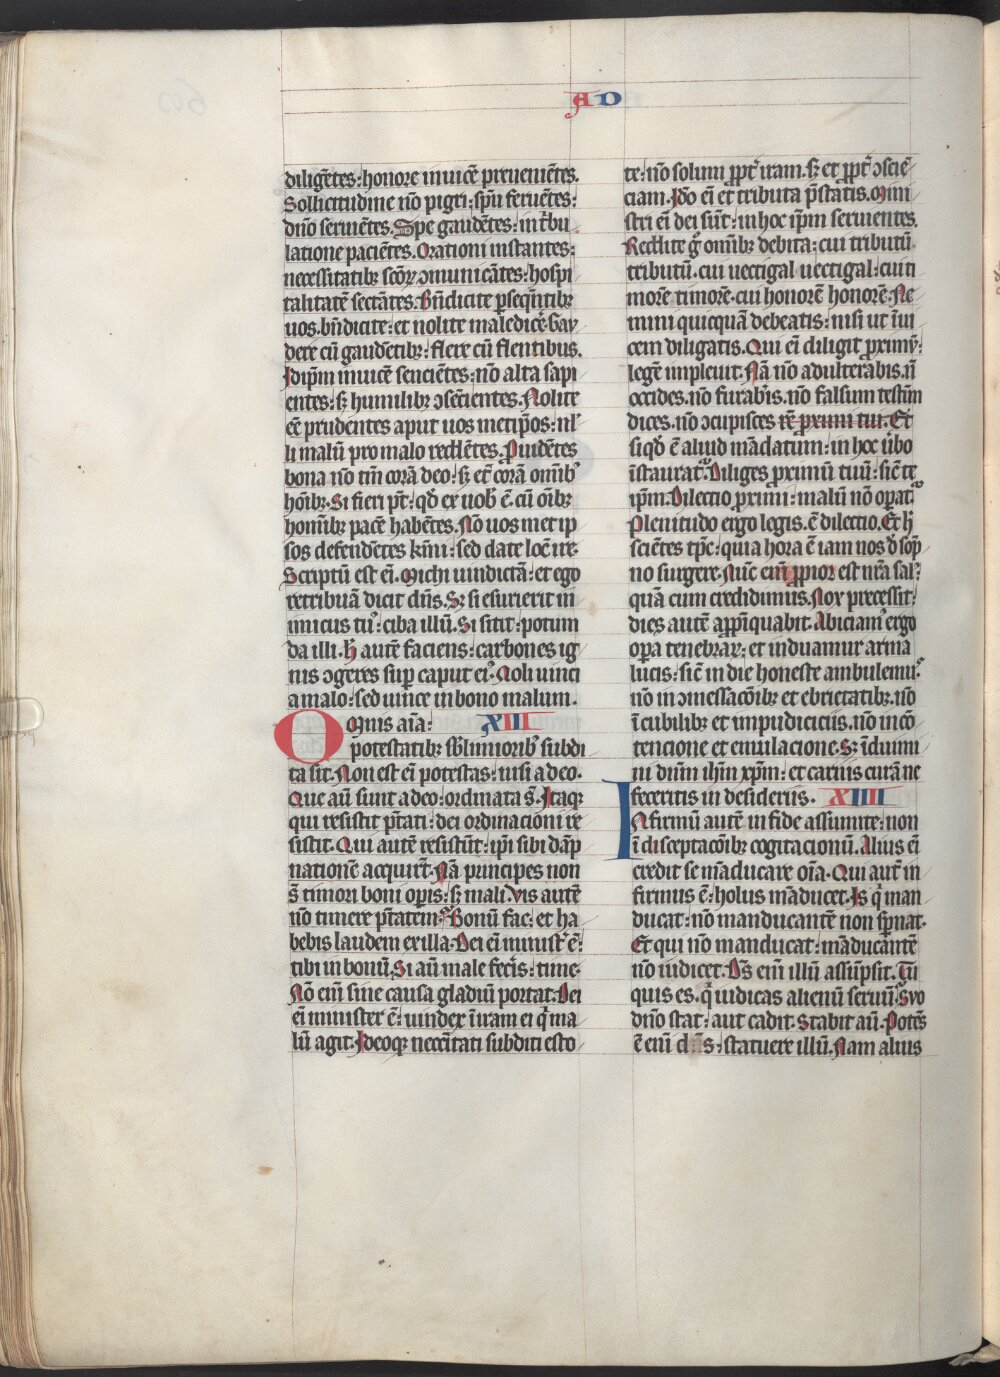 AD
diligẽtes: honore inuicẽ preueniẽtes.
Sollicitudine nõ pigri: spũ feruẽtes:
dnõ seruiẽtes. Spe gaudẽtes: in tˀbu
latione paciẽtes. Orationi instantes:
necessitatibꝫ scõꝝ ɔmunicãtes: hospi
talitatẽ sectãtes. Bñdicite ꝑseqũtibꝫ
uos. bñdicite: et nolite maledicẽ. Gau
dere cũ gaudẽtibꝫ: flere cũ flentibus.
Idip̃m inuicẽ sencientes: nõ alta sapi
entes: sꝫ humilibꝫ ɔsẽcientes. Nolite
eẽ prudentes aput uos metip̃os: nlˀ
li malũ pro malo reddẽtes. Prouidẽtes
bona nõ tm̃ corã deo: sꝫ et corã omĩbꝰ
hoĩbꝫ. Si fieri pt̃: qđ ex uob̃ ẽ. cũ oĩbꝫ
homĩbꝫ pacẽ habẽtes. Nõ uos met ip
sos defendẽtes km̃i: sed date locũ ire.
Scriptũ est eĩ. Michi uindictã: et ego
retribuã dicit dñs. Sꝫ si esurierit in
imicus tuꝰ: ciba illũ. Si sitit: potum
da illi. H̃ autẽ faciens: carbones ig
nis ɔgeres suꝑ caput eiꝰ. Noli uinci
a malo: sed uince in bono malum.
Omnis aĩa: XIII
potestatibꝫ sb̃limioribꝰ subdi
ta sit. Non est eĩ potestas: nisi a deo.
Que aũ sunt a deo: ordinata s̃. Itaqꝫ
qui resistit ptãti: dei ordinacioni re
sistit. Qui autẽ resistũt: ip̃i sibi dãp
nationẽ acquirũt. Nã principes non
s̃ timori boni oꝑis: sꝫ mali. Vis autẽ
nõ timere ptãtem? Bonũ fac: et ha
bebis laudem ex illa. Dei eĩ ministˀ ẽ:
tibi in bonũ. Si aũ male fecˀis: time.
Nõ eĩ sine causa gladiũ portat. Dei
eĩ minister ẽ: uindex ĩ iram ei q̃ ma
lũ agit. Ideoqꝫ neccĩtati subditi esto
te: nõ solum ꝓpt̃ iram. sꝫ et ꝓpt̃ ɔsciẽ
ciam. Ido eĩ et tributa p̃statis. Mini
stri eĩ dei sũt: in hoc ip̃m seruientes.
Reddite g̃ omĩbꝫ debita: cui tributũ
tributũ. cui uectigal uectigal: cui ti
morẽ timorẽ. cui honorẽ honorẽ. Ne
mini quicquã debeatis: nisi ut ĩui
cem diligatis. Qui eĩ diligit ꝓximũ:
legẽ impleuit. Nã nõ adulterabis. ñ
occides. nõ furabˀis. nõ falsum testim
dices. nõ ɔcupisces rẽ ꝓximi tui. Et
siqđ ẽ aliud mãdatum: in hoc ũbo
ĩstauratˀ. Diliges ꝓximũ tuũ: sic̃ te
ip̃m. Dilectio ꝓximi: malũ nõ oꝑatˀ.
Plenitudo ergo legis. ẽ dilectio. Et h̃
sciẽtes tp̃c: quia hora ẽ iam nos đ sop̃
no surgere. Nũc eĩ ꝓpior est nr̃a salꝰ:
quã cum credidimus. Nox precessit:
dies autẽ apꝓp̃iquabit. Abiciamꝰ ergo
oꝑa tenebrarꝫ: et induamur arma
lucis: sic̃ in die honeste ambulemꝰ.
nõ in ɔmessacõibꝫ et ebrietatibꝫ. nõ
ĩ cubilibꝫ et impudiciciis. nõ in cõ
tencione et emulacione. Sꝫ ĩduimi
ni dñm ihm̃ xp̃m: et carnis curã ne
feceritis in desideriis. XIIII
Infirmũ autẽ in fide assumite: non
ĩ disceptacõibꝫ cogitacionũ. Alius eĩ
credit se mãducare oĩa. Qui aut̃ in
firmus ẽ: holus mãducet. Is q̃ man
ducat: nõ manducantẽ non sꝑnat.
Et qui nõ manducat: mãducãtẽ
nõ iudicet. Ds̃ eĩ illũ assũpsit. Tu
quis es. q̃ iudicas alienũ seruũ? Suo
dnõ stat: aut cadit. Stabit aũ. Potẽs
ẽ eĩ d s: statuere illũ. Nam alius